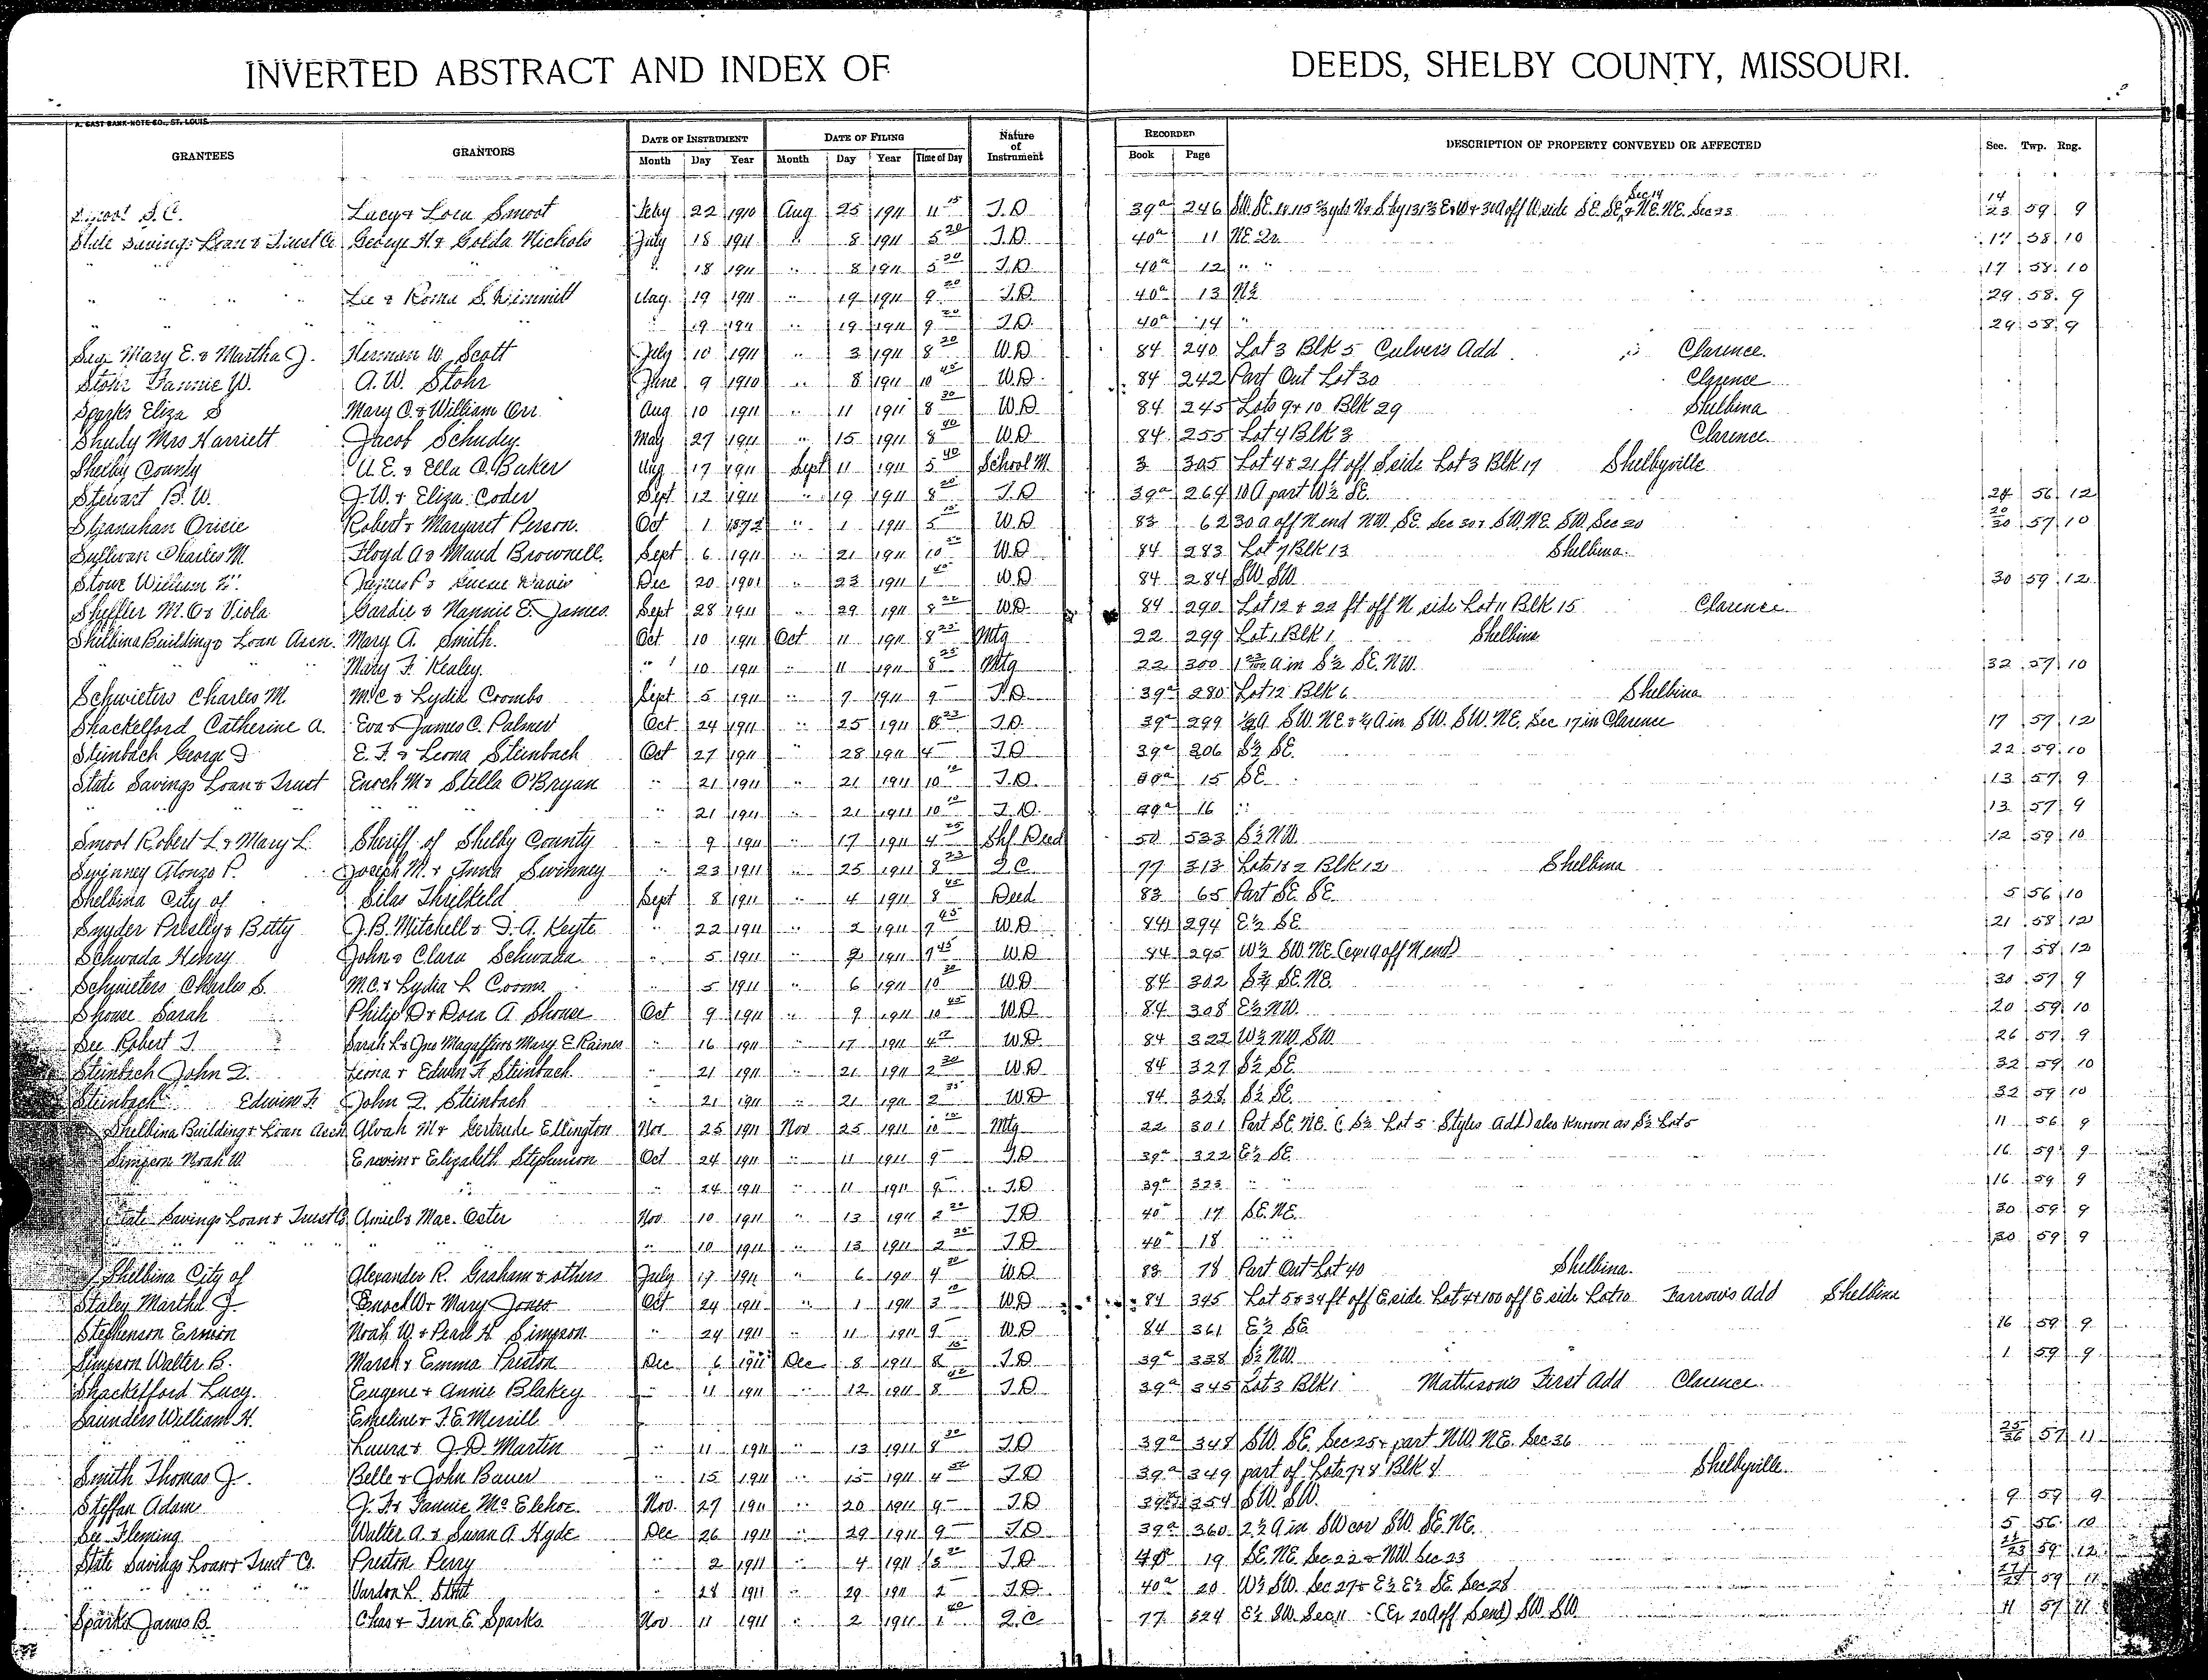 INVERTED ABSTRACT AND INDEX OF DEEDS, SHELBY COUNTY, MISSOURI.
GRANTEES GRANTORS DATE OF INSTRUMENT DATE OF FILING Nature of Instrument RECORDED DESCRIPTION OF PROPERTY CONVEYED OR AFFECTED Sec. Twp. Rng.
Month Day Year Month Day Year Time of Day Book Page
Smoot S. C. Lucy & Lora Smoot Feby 22 1910 Aug 25 1911 11 15 T.D 39a 246 23 59 9
State Savings Loan & Trust Co George H. & Golda Nichols July 18 1911 " 8 1911 5 20 T.D. 40a 11 NE Qr. 17 58 10
" 18 1911 " 8 1911 5 20 T.D 40a 12 " " 17 58 10
" " " Lee & Roma S. Aug 19 1911 " 19 1911 9 20 T.D. 40a 13 N½ 29 58 9
" " " 19 1911 " 19 1911 9 20 T.D. 40a 14 " 29 58 9
Mary E. & Martha J. Herman W. Scott July 10 1911 " 3 1911 8 20 W.D 84 240 Lot 3 Blk 5 Culvers Add Clarence.
Stohr Fannie W. A. W. Stohr June 9 1910 " 8 1911 10 45 W.D. 84 242 Part Out Lot 30 Clarence
Sparks Eliza S Mary O. & William Orr Aug 10 1911 " 11 1911 8 30 W.D 84 245 Lots 9 & 10 Blk 29 Shelbina
Mrs Harriett Jacob Schudy May 27 1911 " 15 1911 8 40 W.D 84 255 Lot 4 Blk 3 Clarence.
Shelby County U. E. & Ella O. Baker Aug 17 1911 Sept 11 1911 5 40 School M. 3 305 Lot 4 & 21 ft off S side Lot 3 Blk 17 Shelbyville
Stewart B. W. J. W. & Eliza Coder Sept 12 1911 " 19 1911 8 20 T.D 39a 264 10 A part W½ SE. 24 56 12
Stranahan Oricie Robert & Margaret Person. Oct 1 1872 " 1 1911 5 15 W.D 83 62 30 a off N end NW. SE. Sec 30 & SW. NE. SW. Sec 20 20 30 57 10
Sullivan Charles M. Floyd A & Maud Brownell. Sept 6 1911 " 21 1911 10 W.D 84 283 Lot 7 Blk 13 Shelbina.
Stowe William Dec 20 1901 " 23 1911 1 W.D. 84 284 SW. SW. 30 59 12
Sheffler M. O & Viola Gardie & Nannie E. James. Sept 28 1911 " 29 1911 8 20 W.D. 84 290 Lot 12 & 22 ft off N side Lot 11 Blk 15 Clarence.
Shelbina Building & Loan Assn. Mary A. Smith. Oct 10 1911 Oct 11 1911 8 25 Mtg 22 299 Lot 1 Blk 1 Shelbina
" Mary F. Kealey. " 10 1911 " 11 1911 8 25 Mtg 22 300 a in S½ SE. NW. 32 57 10
Schwieters Charles M. M. C & Lydia Coombs Sept 5 1911 " 7 1911 9 T.D 39a 280 Lot 12 Blk 6 Shelbina
Shackelford Catherine A. Eva & James C. Palmer Oct 24 1911 " 25 1911 8 23 T.D. 39a 299 SW. NE & A in SW. SW. NE. Sec 17 in Clarence 17 57 12
Steinbach George E. F. & Leona Steinbach Oct 27 1911 " 28 1911 4 T.D 39a 306 S½ SE. 22 59 10
State Savings Loan & Trust Enoch M & Stella O'Bryan " 21 1911 " 21 1911 10 10 T.D. 15 SE 13 57 9
" " 21 1911 " 21 1911 10 10 T.D. 16 " 13 57 9
Smoot Robert L. & Mary L. Sheriff of Shelby County " 9 1911 " 17 1911 4 25 Shf Deed 50 533 S½ NW. 12 59 10
Swinney Alonzo P. Joseph M. & Swinney " 23 1911 " 25 1911 8 23 Q.C. 77 313 Lots 1 & 2 Blk 12 Shelbina
Shelbina City of Silas Thielkeld Sept 8 1911 " 4 1911 8 45 Deed 83 65 Part SE. SE. 5 56 10
Snyder Presley & Betty J. B. Mitchell & Keyte " 22 1911 " 2 1911 9 45 W.D 84 294 E½ SE. 21 58 12
Schwada Henry John & Clara Schwada " 5 1911 " 2 1911 9 45 W.D 84 295 W½ SW. NE. (ex 1 a off N end) 7 58 12
Schwieters Charles S. M. C. & Lydia L. Cooms " 5 1911 " 6 1911 10 30 W.D 84 302 SE. NE. 30 57 9
Shouse Sarah Philip D & Dora A. Shouse Oct 9 1911 " 9 1911 10 45 W.D. 84 308 E½ NW. 20 59 10
See Robert T. Sarah L. & Jno & Mary E. Raines " 16 1911 " 17 1911 4 W.D. 84 322 W½ NW. SW. 26 57 9
Steinbach John Q. Leona & Edwin F. Steinbach " 21 1911 " 21 1911 2 30 W.D 84 327 S½ SE. 32 59 10
Steinbach Edwin F. John Q. Steinbach " 21 1911 " 21 1911 2 35 W.D 84 328 S½ SE. 32 59 10
Shelbina Building & Loan Assn Alvah M & Gertrude Ellington Nov 25 1911 Nov 25 1911 10 10 Mtg 22 301 Part SE. NE. (S½ Lot 5 Styles Add) also known as S½ Lot 5 11 56 9
Simpson Noah W. Erwin & Elizabeth Stephenson Oct 24 1911 " 11 1911 9 T.D 39a 322 E½ SE 16 59 9
" 24 1911 " 11 1911 9 T.D 39a 323 " " 16 59 9
State Savings Loan & Trust Co. Amiel & Mae Oster Nov 10 1911 " 13 1911 2 20 T.D 40a 17 SE. NE. 30 59 9
" " " 10 1911 " 13 1911 2 T.D 40a 18 " " 30 59 9
Shelbina City of Alexander R. Graham & others July 17 1911 " 6 1911 4 W.D 83 78 Part Out Lot 40 Shelbina.
Staley Martha J Enoch W & Mary Jones Oct 24 1911 " 1 1911 3 10 W.D 84 345 Lot 5 & 34 ft off E side Lot 4 & 100 off E side Lot 10 Farrow's Add Shelbina
Stephenson Erwin Noah W. & Pearl H. Simpson " 24 1911 " 11 1911 9 W.D 84 361 E½ SE 16 59 9
Simpson Walter B. Marsh & Emma Preston Dec 6 1911 Dec 8 1911 8 15 T.D 39a 338 S½ NW. 1 59 9
Shackelford Lucy. Eugene & Annie Blakey " 11 1911 " 12 1911 8 T.D 39a 345 Lot 3 Blk 1 Mattison's First Add Clarence.
Saunders William H. Emeline & T. E. Merrill
Laura & J. D. Martin " 11 1911 " 13 1911 8 30 T.D 39a 348 SW. SE. Sec 25 & part NW. NE. Sec 36 25 36 57 11
Smith Thomas J. Belle & John Bauer " 15 1911 " 15 1911 4 T.D 39a 349 part of Lots 7 & 8 Blk 4 Shelbyville.
Steffan Adam J. F. & Fannie McElehoe Nov. 27 1911 " 20 1911 9 T.D 39a 354 SW. SW. 9 59 9
See Fleming Walter A. & Susan A. Hyde Dec 26 1911 " 29 1911 9 T.D 39a 360 2½ A in SW cor SW. SE. NE. 5 56 10
State Savings Loan & Trust Co. Preston Perry " 2 1911 " 4 1911 T.D 40a 19 SE. NE. Sec 22 & NW. Sec 23 22 23 59 12
" " Vardon L. " 28 1911 " 29 1911 2 T.D. 40a 20 W½ SW. Sec 27 & E½ E½ SE. Sec 28 27 28 59 11
Sparks James B. Chas & Fern E. Sparks Nov 11 1911 " 2 1911 1 Q.C 77 324 E½ SW. Sec 11 (Ex 20 A off S end) SW. SW. 11 57 11